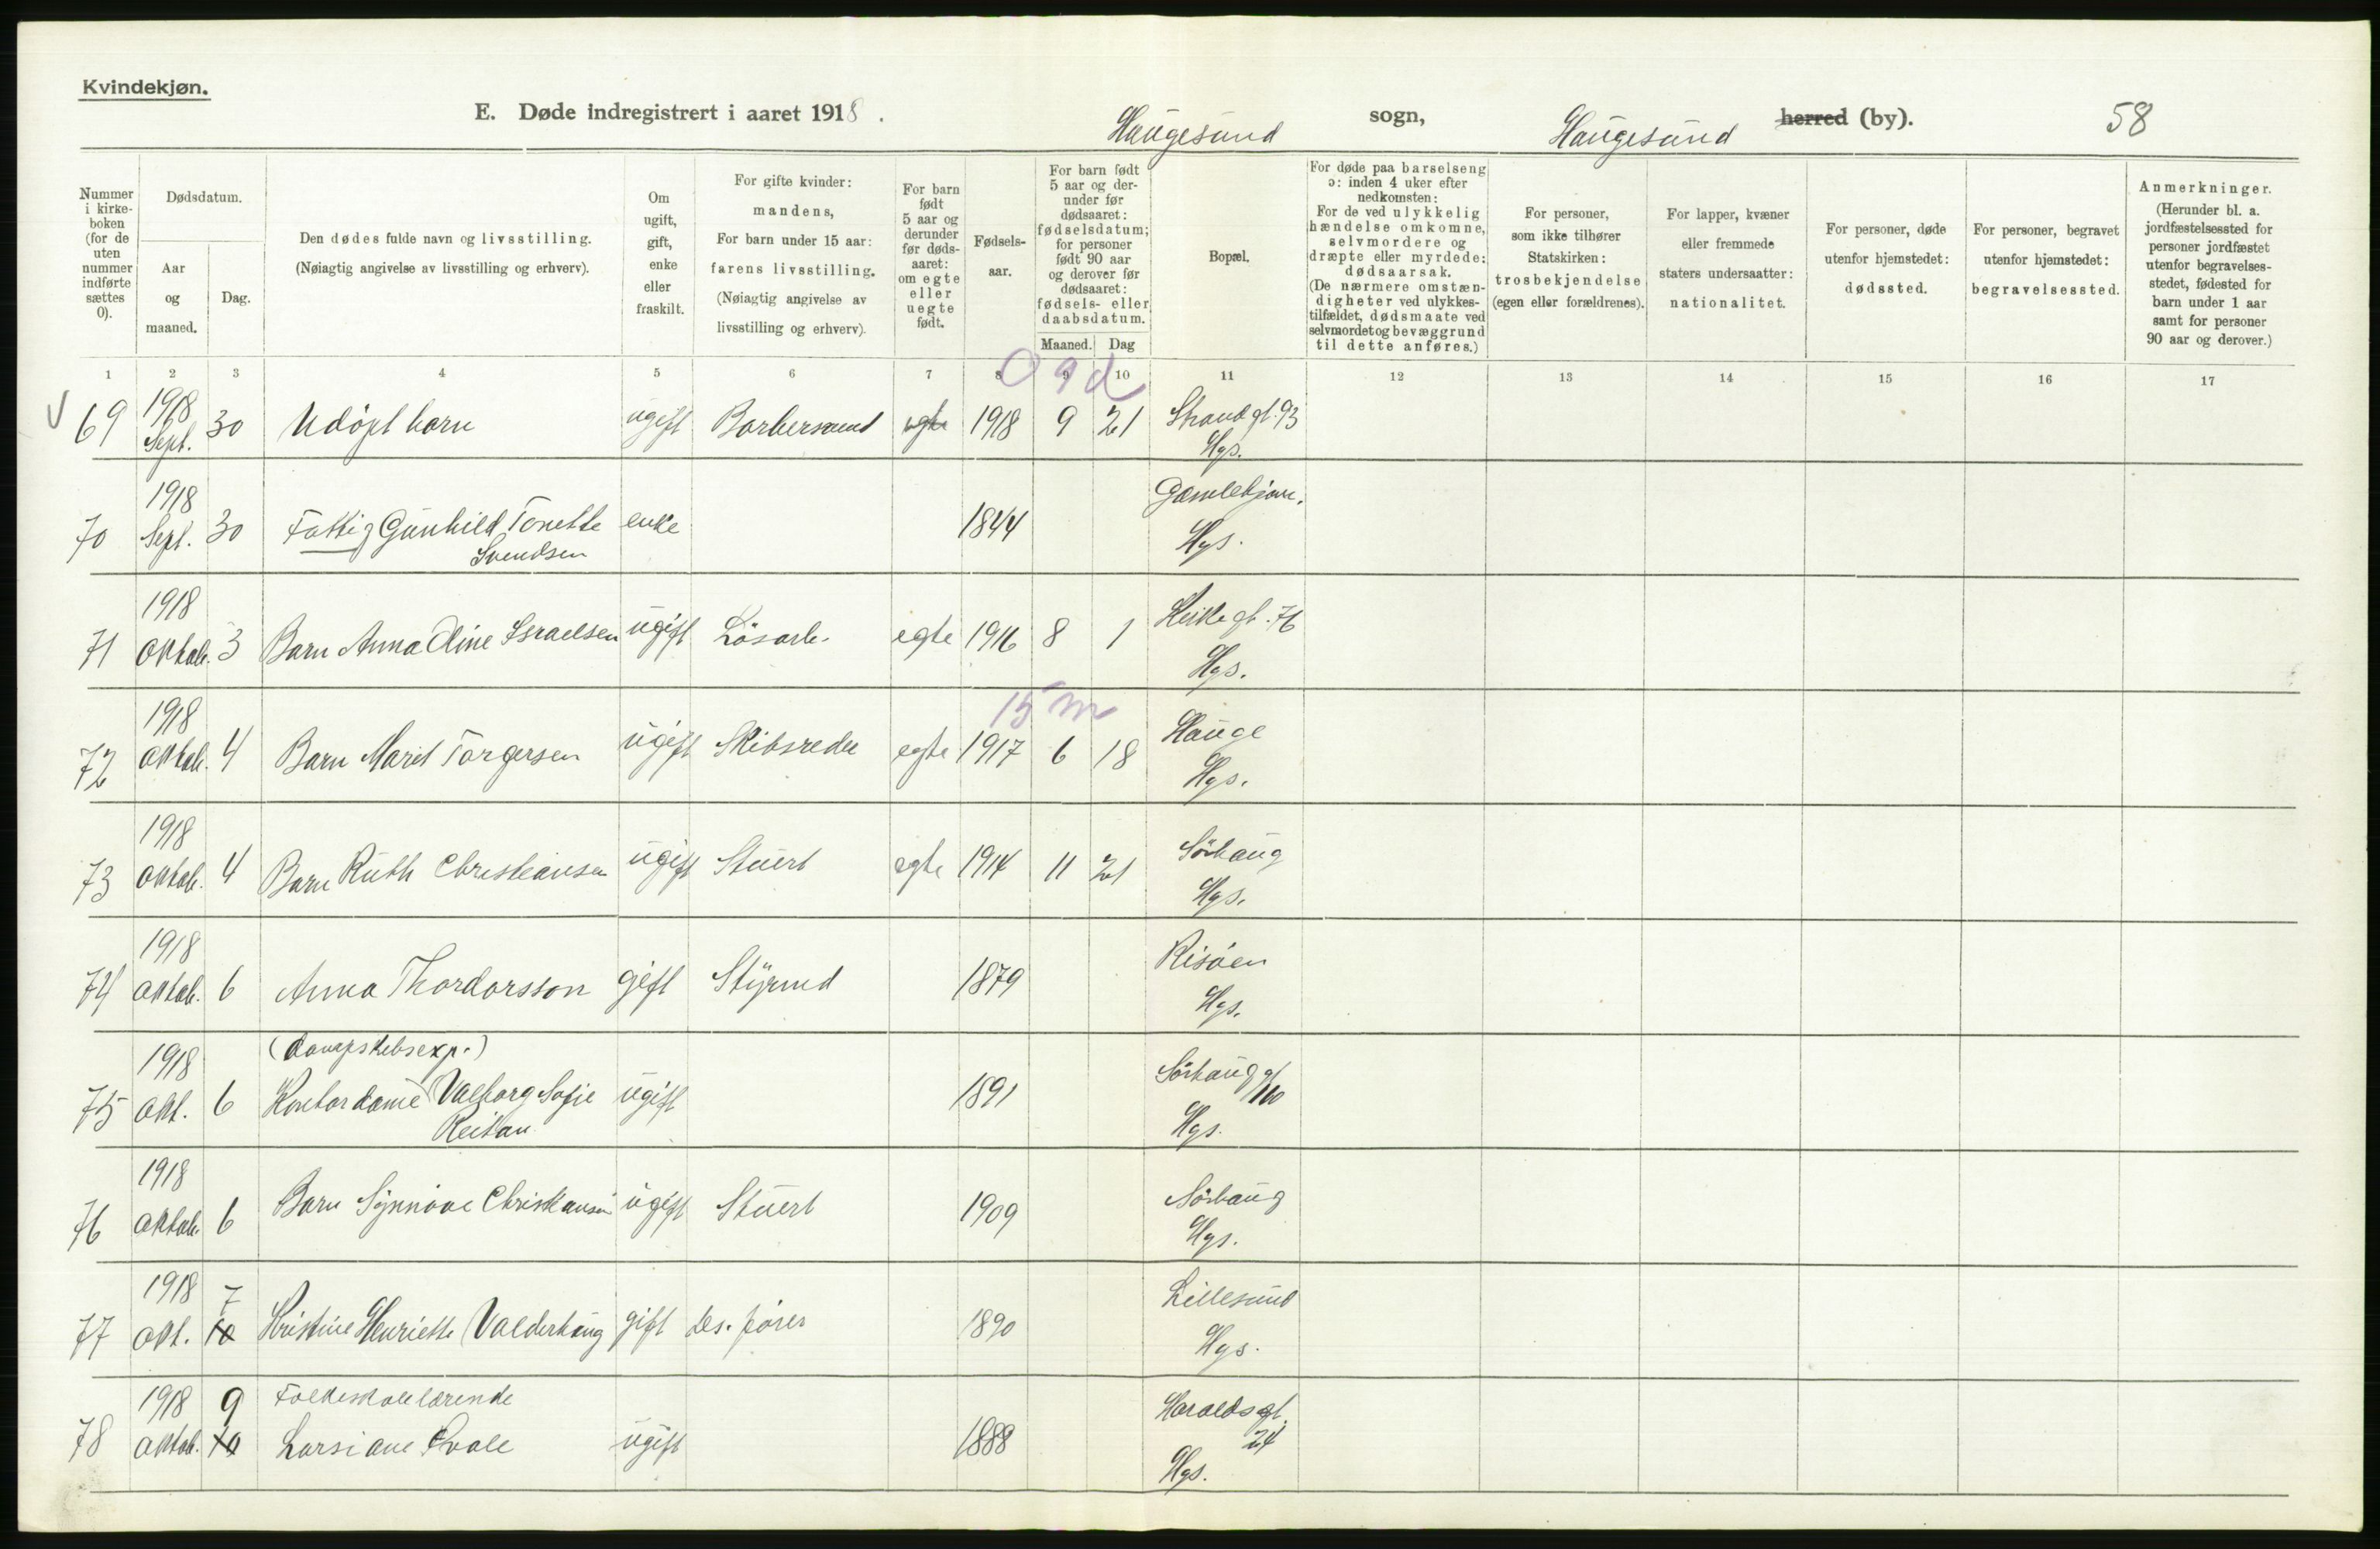 Kvindekjøn.
E. Døde indregistrert i aaret 1918. Haugesund sogn, Haugesund herred (by). 58
Nummer i kirke-boken (for de uten nummer indførte sættes 0).
Dødsdatum.
Aar og maaned.
Dag.
Den dødes fulde navn og livsstilling.
(Nøiagtig angivelse av livsstilling og erhverv).
Om ugift, gift, enke eller fraskilt.
For gifte kvinder: mandens,
For barn under 15 aar: farens livsstilling.
(Nøiagtig angivelse av livsstilling og erhverv).
For barn født 5 aar og derunder før døds-aaret: om egte eller uegte født.
Fødsels-aar.
For barn født 5 aar og der-under før dødsaaret: fødselsdatum; for personer født 90 aar og derover før dødsaaret: fødsels- eller daabsdatum.
Maaned. Dag
Bopæl.
For døde paa barselseng ɔ: inden 4 uker efter nedkomsten:
For de ved ulykkelig hændelse omkomne, selvmordere og dræpte eller myrdede: dødsaarsak.
(De nærmere omstæn-digheter ved ulykkes-tilfældet, dødsmaate ved selvmordet og bevæggrund til dette anføres.)
For personer, som ikke tilhører Statskirken: trosbekjendelse (egen eller forældrenes).
For lapper, kvæner eller fremmede staters undersaatter: nationalitet.
For personer, døde utenfor hjemstedet: dødssted.
For personer, begravet utenfor hjemstedet: begravelsessted.
Anmerkninger.
(Herunder bl. a. jordfæstelsessted for personer jordfæstet utenfor begravelses-stedet, fødested for barn under 1 aar samt for personer 90 aar og derover.)
1 2 3 4 5 6 7 8 9 10 11 12 13 14 15 16 17
0 9 d
V 69 1918 Sept. 30 Udöpt barn ugift Barbersvend egte 1918 9 21 Strandgt. 93 Hgs.
70 1918 Sept. 30 Fattig Gunhild Tonette Svendsen enke 1844 Gamlehjem. Hgs.
71 1918 Oktob. 3 Barn Anna Eline Israelsen ugift Lösarb. egte 1916 8 1 Kirkegt. 76 Hgs.
15 m
72 1918 Oktob. 4 Barn Marit Torgersen ugift Skibsreder egte 1917 6 18 Hauge Hgs.
73 1918 Oktob. 4 Barn Ruth Christiansen ugift Stuert egte 1914 11 21 Sörhaug Hgs.
74 1918 Oktob. 6 Anna Thordarsson gift Styrmd 1879 Risöen Hgs.
75 1918 Okt. 6 (dampskibsexp.) Kontordame Valborg Sofie Reitan ugift 1891 Sörhauggt 110 Hgs.
76 1918 Oktob. 6 Barn Synnöve Christiansen ugift Stuert 1909 Sörhaug Hgs.
77 1918 Okt. 7 10 Kristine Henriette Valderhaug gift bes. förer 1890 Lillesund Hgs.
78 1918 Oktob. 9 10 Folkeskolelærerinde Larsiane Hvale ugift 1888 Haraldsgt. 24 Hgs.